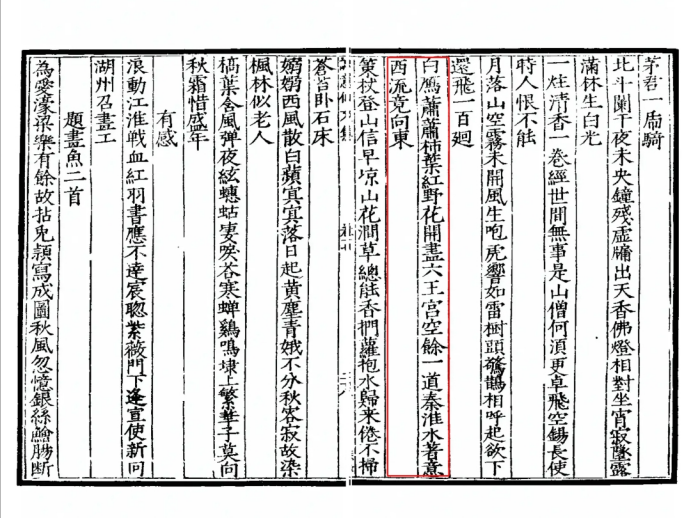 茅君一扄騎
北斗闌干夜未央鐘殘虛牖出天香佛燈相對坐宵寂墜露
滿林生白光
一炷清香一卷經世間無事是山僧何湏更卓飛空錫長使
時人恨不能
月落山空霧未開風生咆虎響如雷樹頭驚鵲相呼起欲下
還飛一百廻
白鴈蕭蕭柿葉紅野花開盡六王宮空餘一道秦淮水著意
西流竟向東
策杖登山信早凉山花澗草總能香捫蘿抱水歸来倦不掃
蒼苔卧石床
嫋嫋西風散白蘋寞寞落日起黄塵青娥不分秋容寂故染
楓林似老人
槁葉含風彈夜絃蟪蛄凄唳荅寒蟬鷄鳴埭上繁華子莫向
秋霜惜盛年
有感
浪動江淮戰血紅羽書應不達宸聰紫薇門下逢宣使新向
湖州召畫工
題畫魚二首
為愛濠梁樂有餘故拈兎頴寫成圖秋風忽憶銀絲鱠腸斷